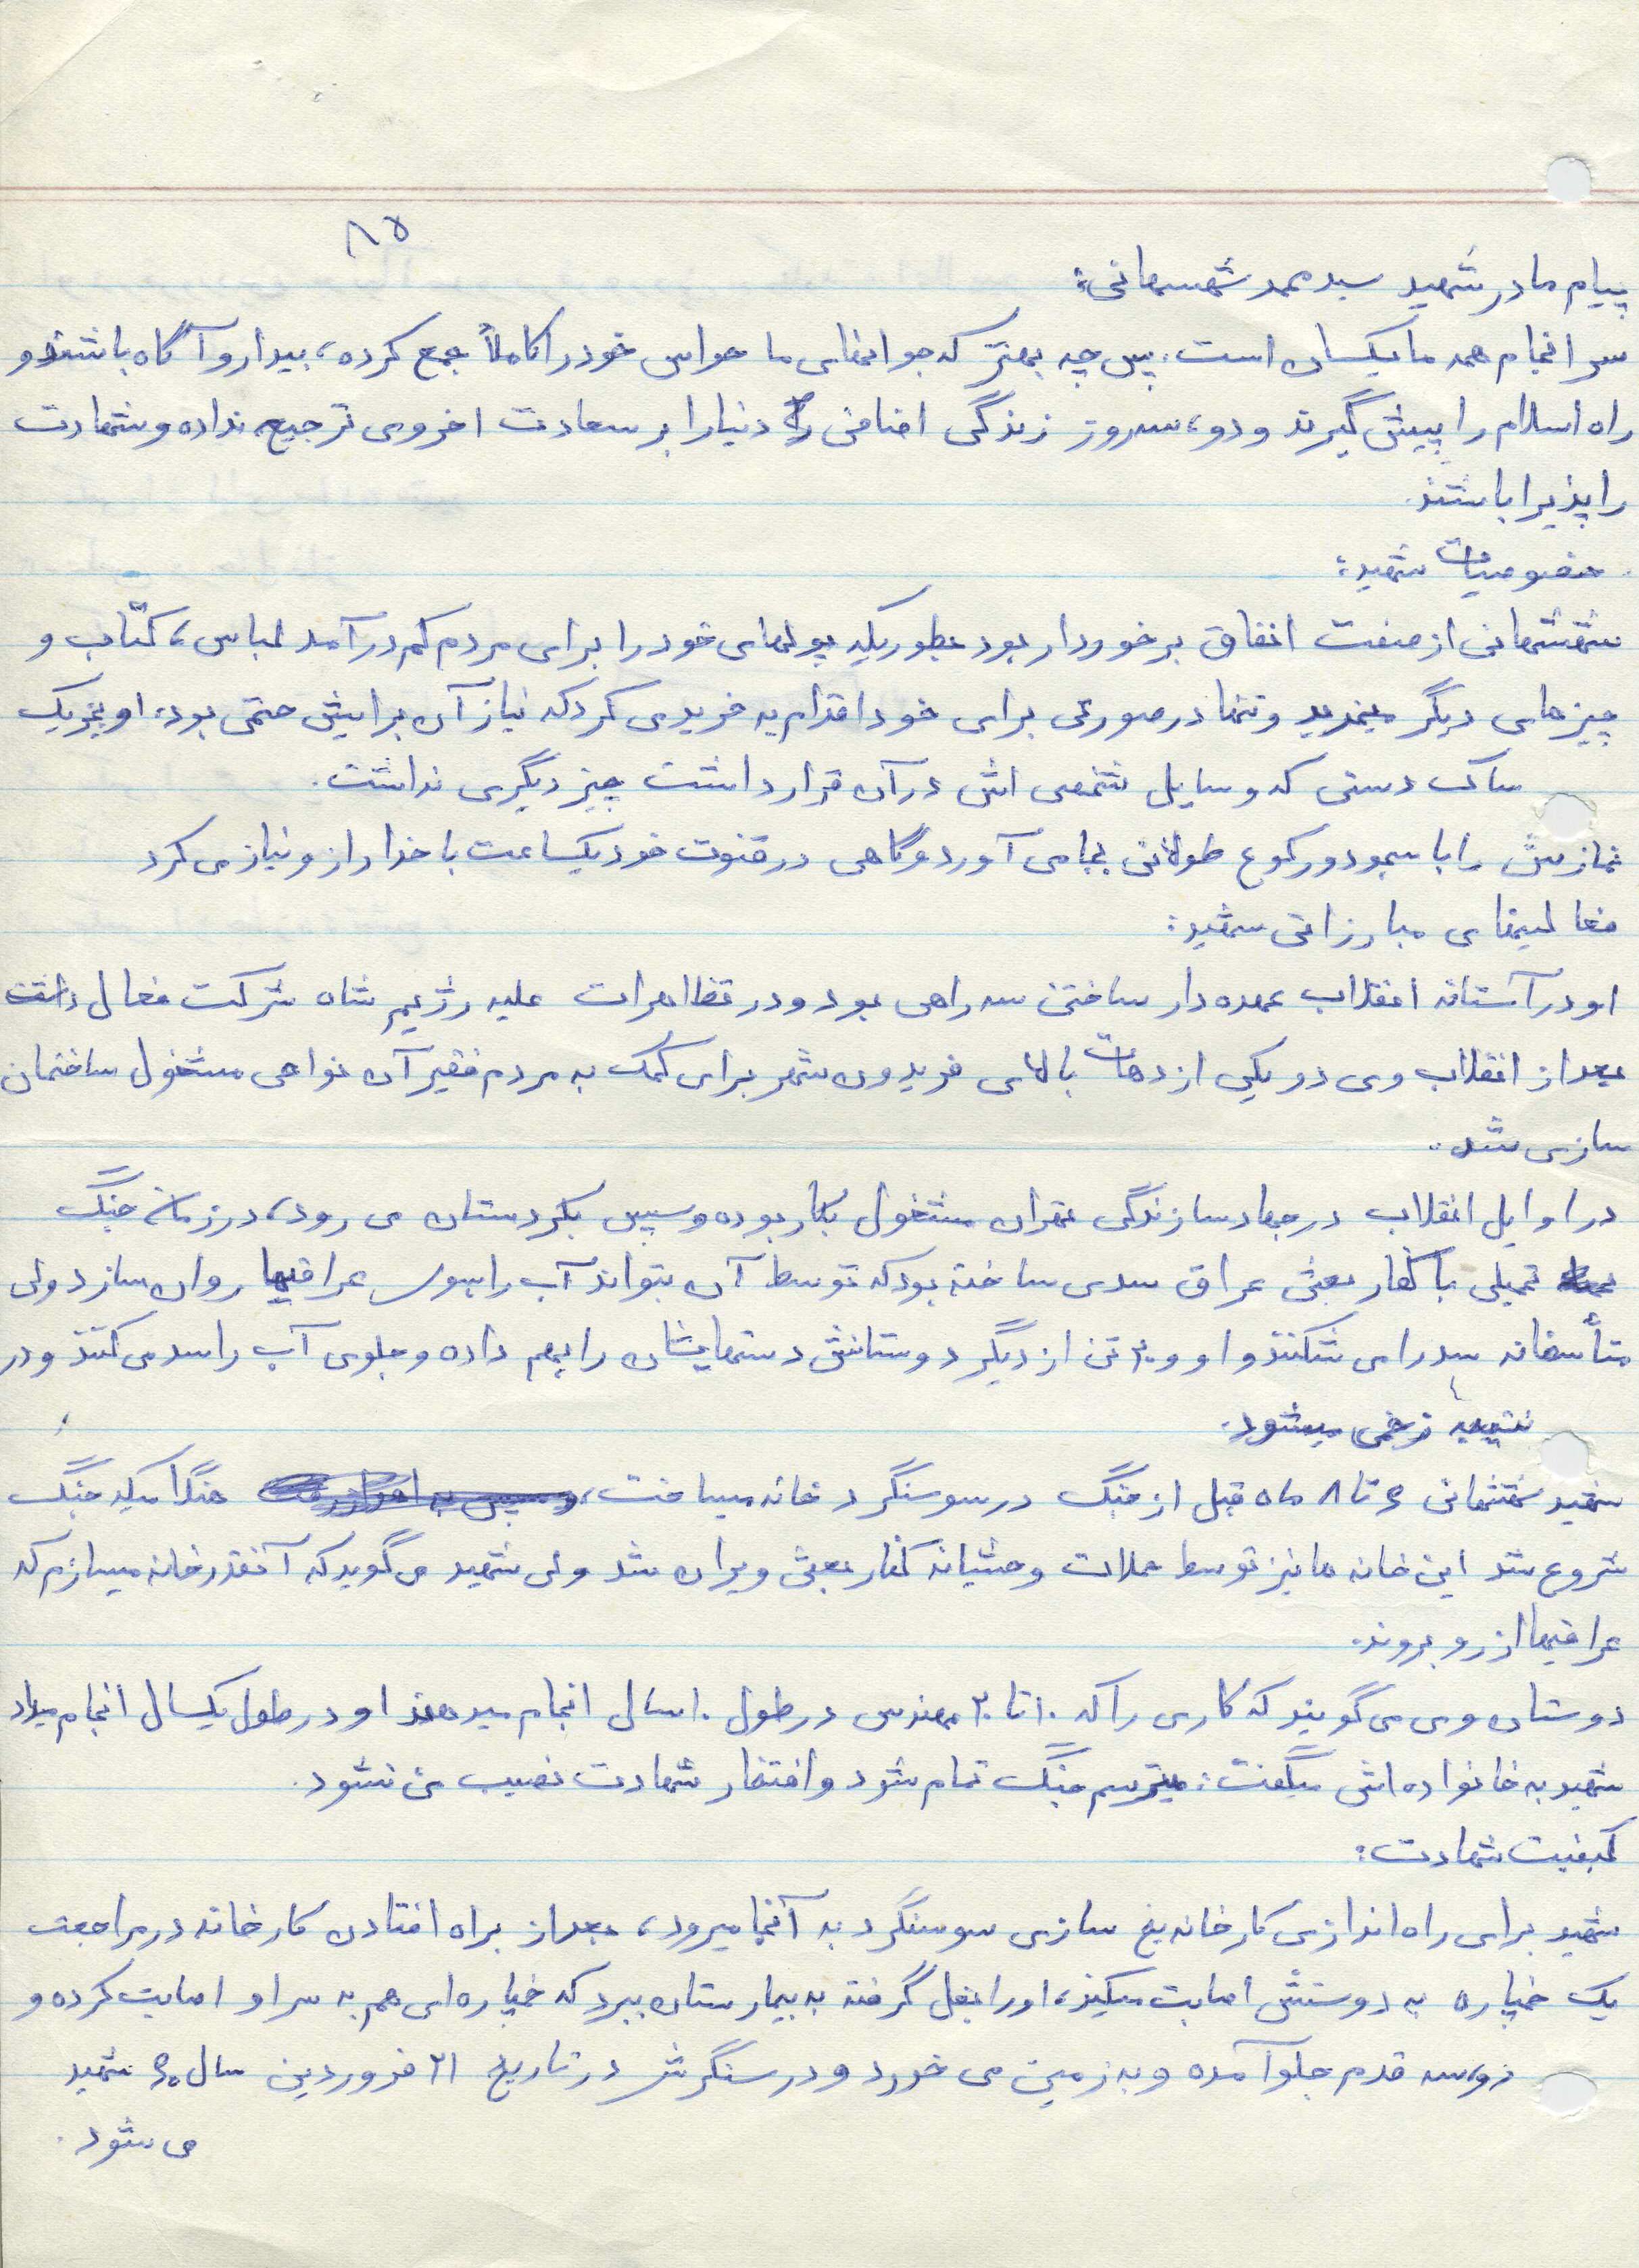 ۸۵
پیام مادر شهید سید محمد شهشهانی:
سرانجام همه ما یکسان است. پس چه بهتر که جوانهای ما حواس خود را کاملاً جمع کرده، بیدار و آگاه باشند و
راه اسلام را پیش گیرند و دو، سه روز زندگی اضافی دنیا را بر سعادت اخروی ترجیح نداده و شهادت
را پذیرا باشند.
خصوصیات شهید:
شهشهانی از صفت انفاق برخوردار بود بطوریکه پولهای خود را برای مردم کم درآمد لباس، کتاب و
چیزهای دیگر میخرید و تنها در صورتی برای خود اقدام به خریدی کرد که نیاز آن برایش حتمی بود، او بجز یک
ساک دستی که وسایل شخصی اش در آن قرار داشت چیز دیگری نداشت.
نمازش را با سجود و رکوع طولانی بجا می آورد و گاهی در قنوت خود یکساعت با خدا راز و نیاز می کرد
فعالیتهای مبارزاتی شهید:
او در آستانه انقلاب عهده دار ساختن سه راهی بود و در تظاهرات علیه رژیم شاه شرکت فعال داشت
بعد از انقلاب وی در یکی از دهات بالای فریدون شهر برای کمک به مردم فقیر آن نواحی مشغول ساختمان
سازی شد.
در اوایل انقلاب در جهاد سازندگی تهران مشغول بکار بوده و سپس بکردستان می رود، در زمان جنگ
تحمیلی با کفار بعثی عراق سدی ساخته بود که توسط آن بتواند آب را بسوی عراقیها روان سازد ولی
متأسفانه سد را می شکنند و او و ۲۰ تن از دیگر دوستانش دستهایشان را بهم داده و جلوی آب را سد می کنند و در
نتیجه زخمی میشود.
شهید شهشهانی ۶ تا ۸ ماه قبل از جنگ در سوسنگرد خانه میساخت، هنگامیکه جنگ
شروع شد این خانه ها نیز توسط حملات وحشیانه کفار بعثی ویران شد ولی شهید می گوید که آنقدر خانه میسازم که
عراقیها از رو بروند.
دوستان وی می گویند که کاری را که ۱۰ تا ۲۰ مهندس در طول ۱۰ سال انجام میدهند او در طول یکسال انجام میداد
شهید به خانواده اش میگفت: میترسم جنگ تمام شود و افتخار شهادت نصیب من نشود.
کیفیت شهادت:
شهید برای راه اندازی کارخانه یخ سازی سوسنگرد به آنجا میرود، بعد از براه افتادن کارخانه در مراجعت
یک خمپاره به دوستش اصابت میکند، او را بغل گرفته به بیمارستان ببرد که خمپاره ای هم به سر او اصابت کرده و
دو سه قدم جلو آمده و به زمین می خورد و در سنگرش در تاریخ ۲۱ فروردین سال ۶۰ شهید
می شود.